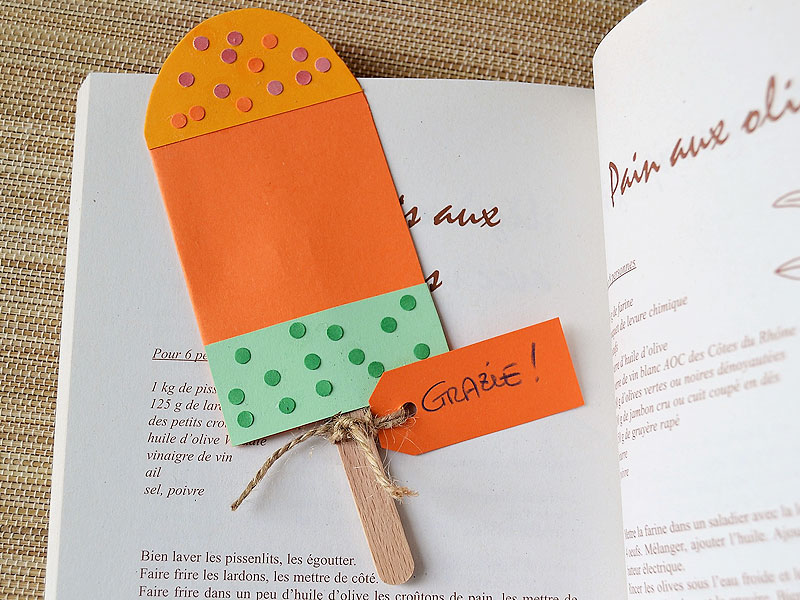 is aux
Pour 6 pe
1 kg de piss
125 g de lard
des petits cro
huile d'olive V
vinaigre de vin
ail
sel, poivre
Bien laver les pissenlits, les égoutter.
Faire frire les lardons, les mettre de côté.
Faire frire dans un peu d'huile d'olive les croûtons de pain, les mettre de
GRAZIE!
Pain aux oli
personnes
de farine
de levure chimique
d'huile d'olive
de vin blanc AOC des Côtes du Rhône
d'olives vertes ou noires dénoyautées
de jambon cru ou cuit coupé en dés
de gruyère rapé
la farine dans un saladier avec la l
œufs. Mélanger, ajouter l'huile. Ajou
électrique.
les olives sous l'eau froide et l